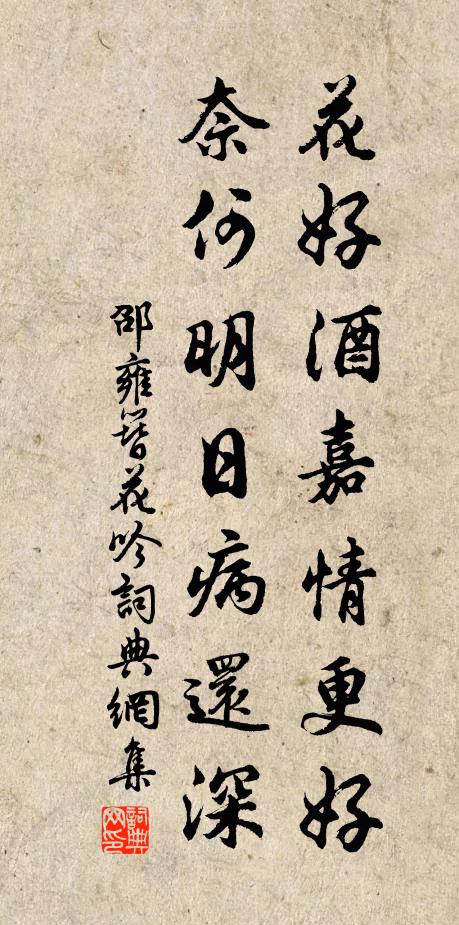 花好酒嘉情更好
奈何明日病還深
邵雍簪花吟詞典網集
詞典网印